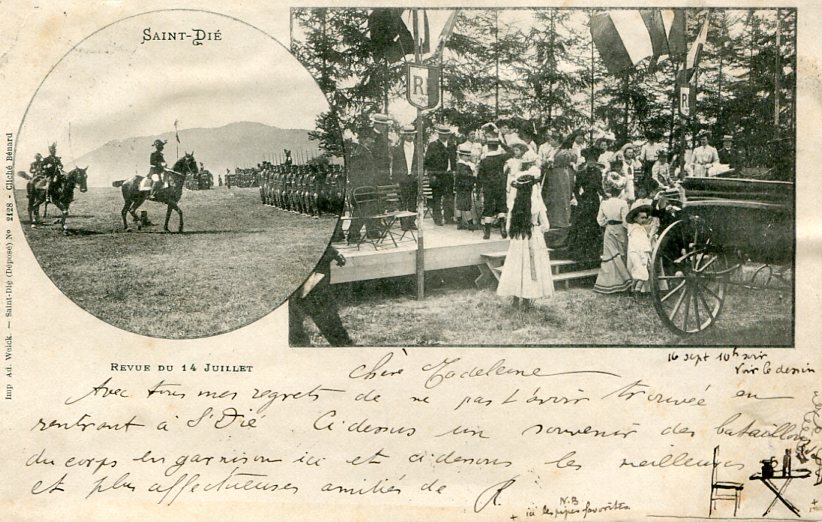 SAINT-DIÉ
R
R
Imp Ad. Weick. — Saint-Dié (Déposé) Nº 2128 - Cliché Bénard
REVUE DU 14 JUILLET
16 sept 10h soir
Voir le dessin
Chère Madeleine
Avec tous mes regrets de ne pas t'avoir trouvée en
rentrant à St Dié Ci dessus un souvenir des bataillons
du corps en garnison ici et ci dessous les meilleures
et plus affectueuses amitiés de R.
N.B
+ ici les pipes favorites